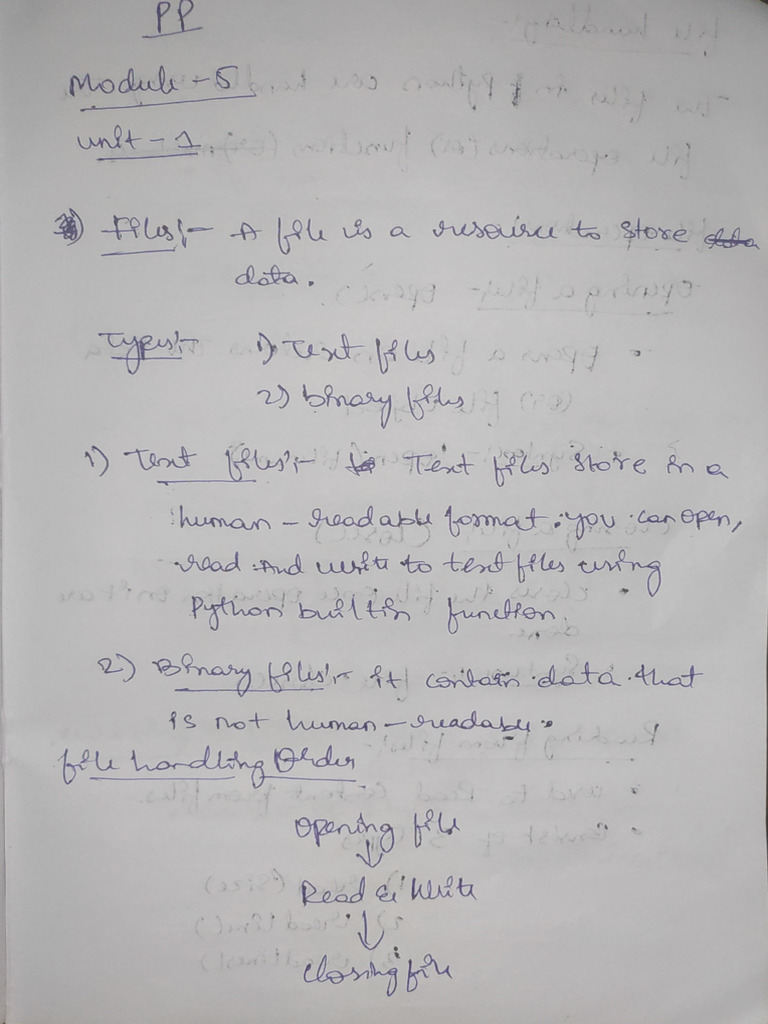 PP
Module - 5
unit - 1
Files:- A file is a resource to store
data.
Types:- 1) Text files
2) binary files
1) Text files:- Text files store in a
human - readable format. you can open,
read And write to text files using
Python built in function.
2) Binary files:- it contain data that
is not human - readable.
file handling Order
Opening file
↓
Read & Write
↓
closing file